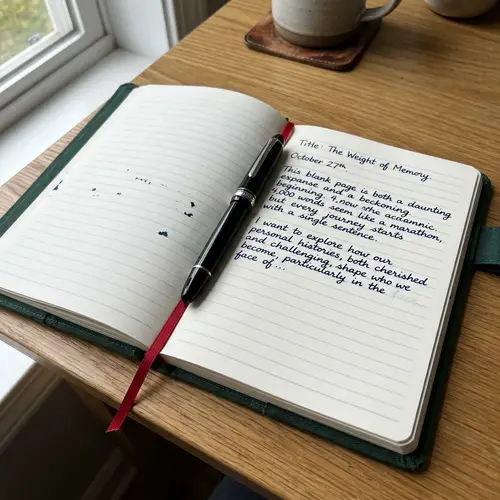 Title: The Weight of Memory.
October 27th.
This blank page is both a daunting
expanse and a beckoning
beginning. 4, now the
4,000 words seem like a marathon,
but every journey starts
with a single sentence.
I want to explore how our
personal histories, both cherished
and challenging, shape who we
become, particularly in the
face of...